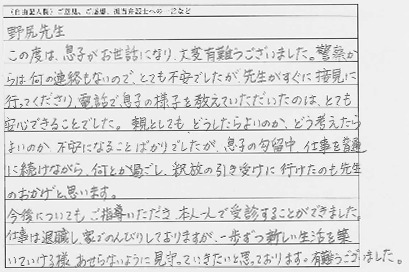 (自由記入欄) ご意見、ご感想、担当弁護士への一言など
野尻先生
この度は、息子がお世話になり、大変有難うございました。警察か
らは何の連絡もないので、とても不安でしたが、先生がすぐに接見に
行ってくださり、電話で息子の様子を教えていただいたのは、とても
安心できることでした。親としても、どうしたらよいのか、どう考えたら
よいのか、不安になることばかりでしたが、息子の勾留中、仕事を普通
に続けながら、何とか過ごし、釈放の引き受けに行けたのも先生
のおかげと思います。
今後についても、ご指導いただき、本人一人で受診することができました。
仕事は退職し、家でのんびりしておりますが、一歩ずつ新しい生活を築
いていける様、あせらないように見守っていきたいと思っております。有難うございました。